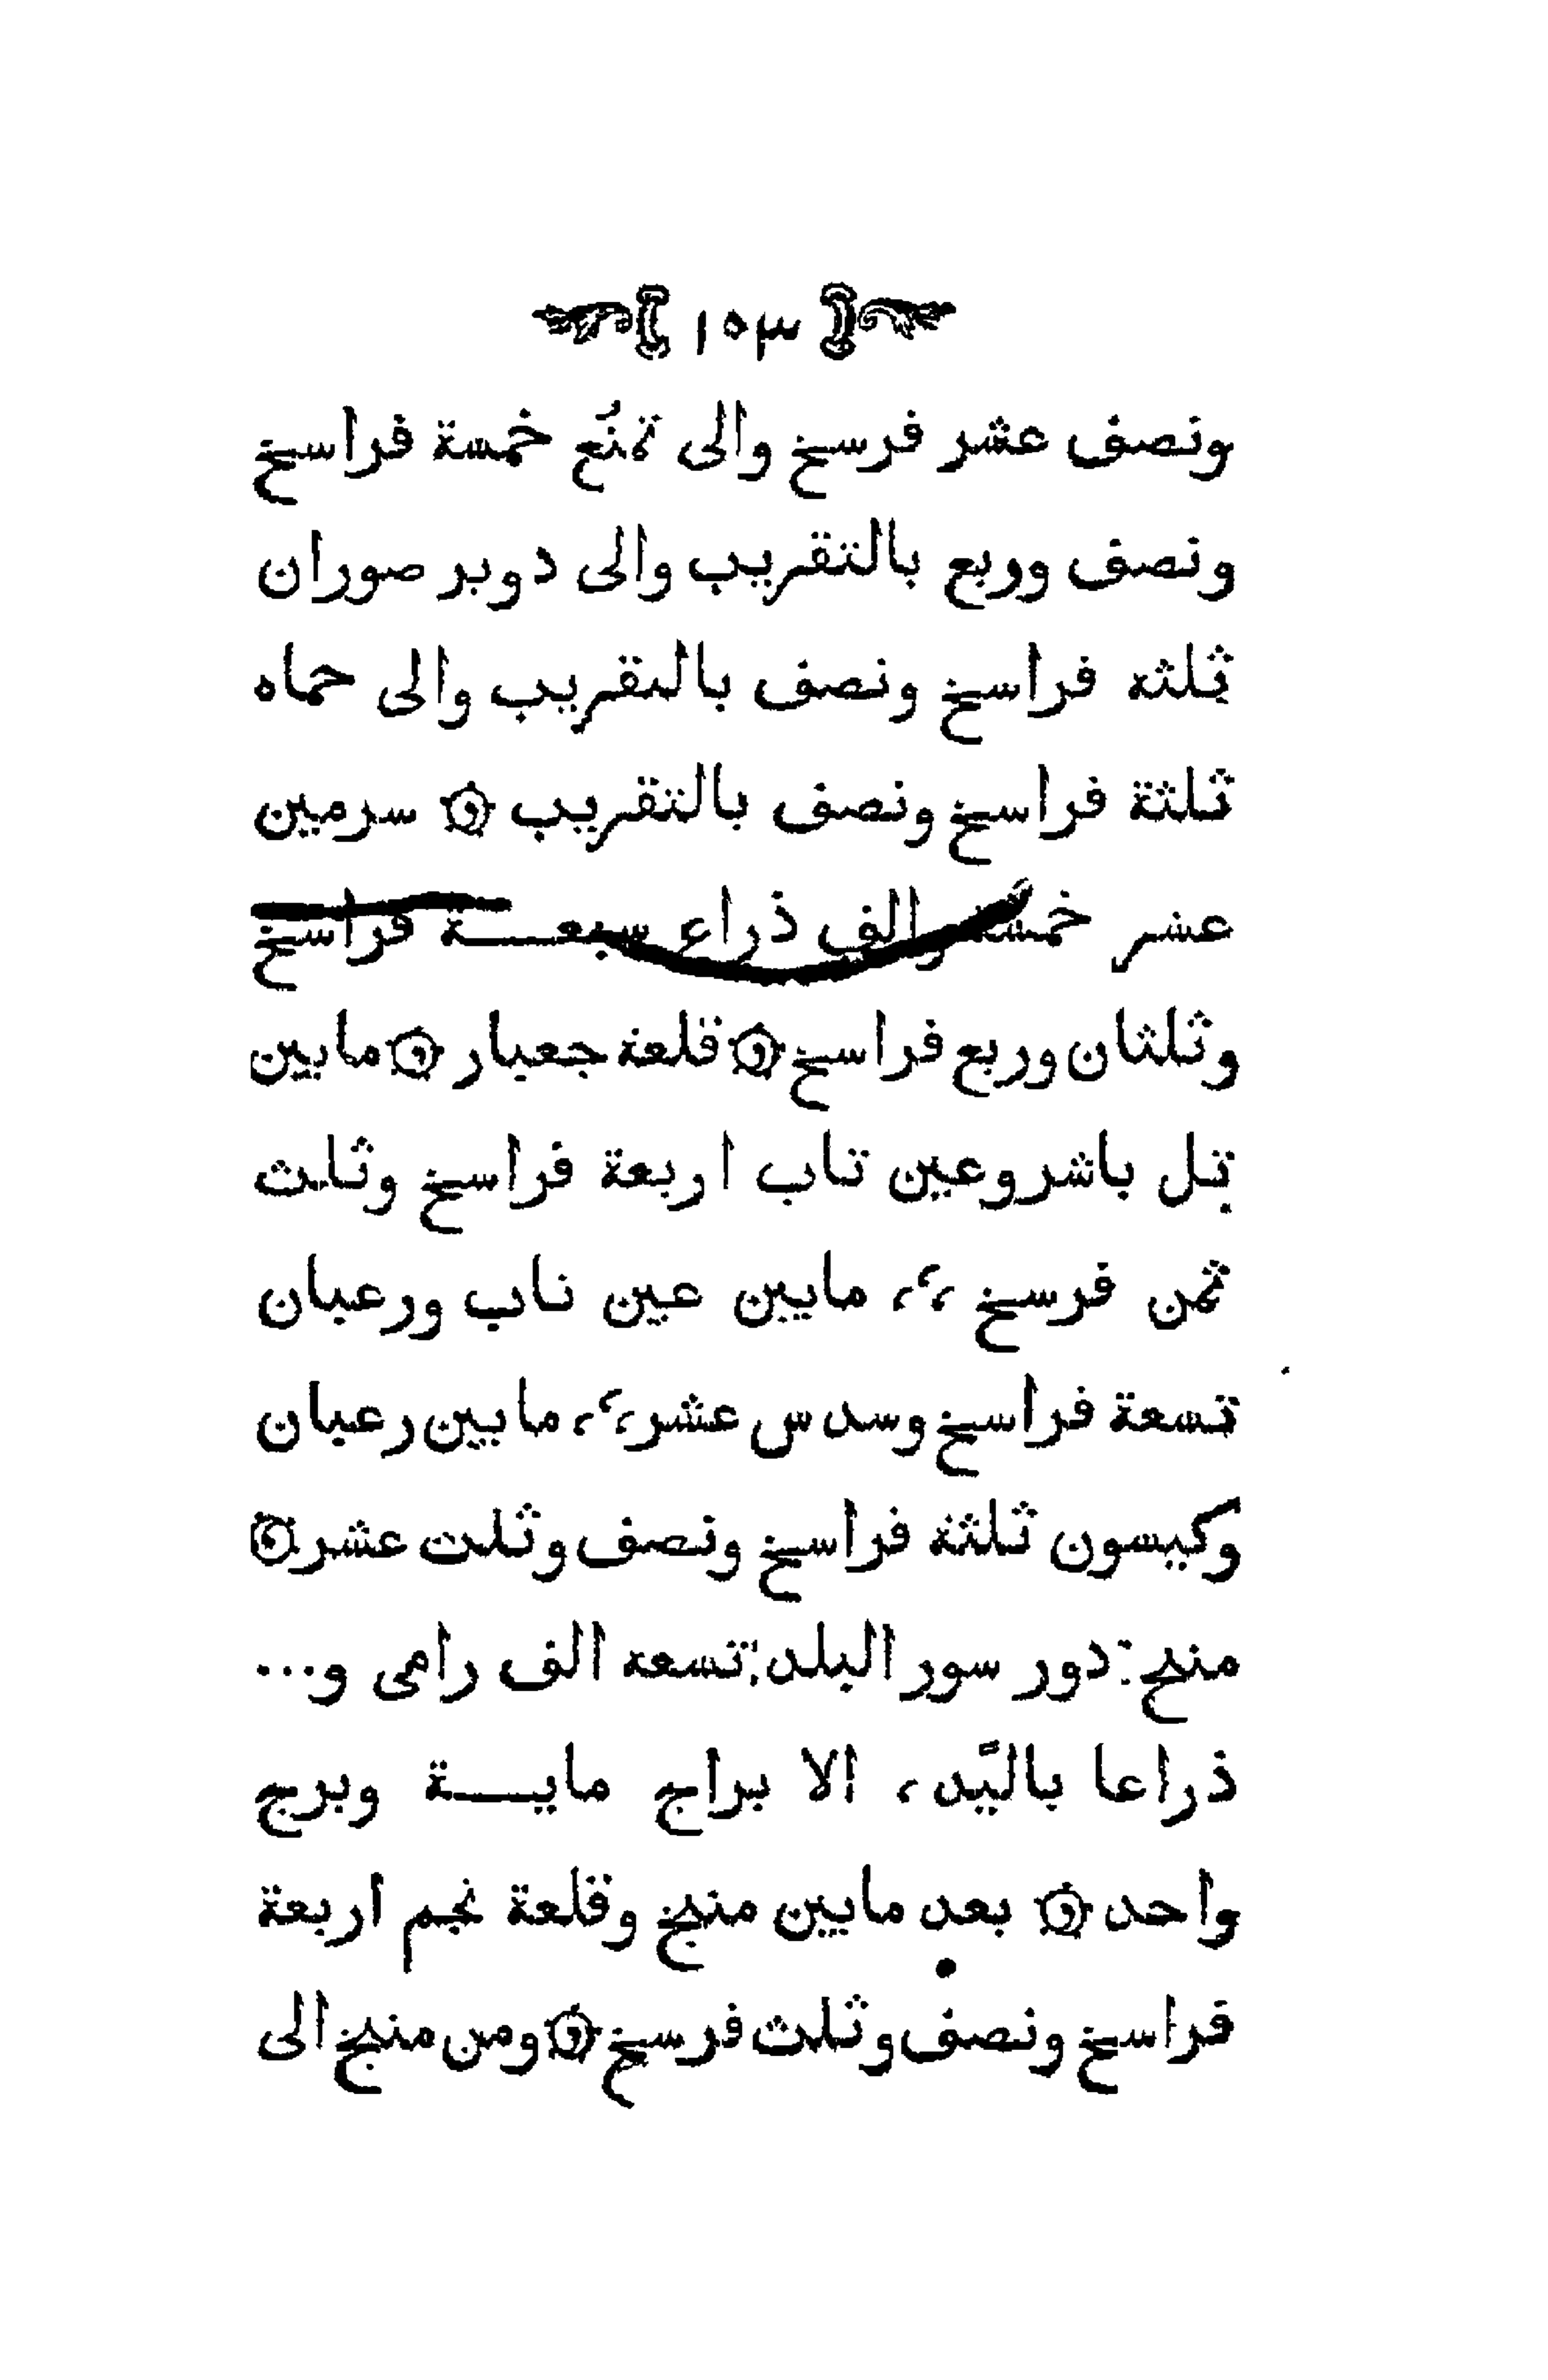 ١٥٣
ونصف عشر فرسخ والى تمنُع خمسة فراسخ
ونصف وربع بالتقريب والى دوير صوران
ثلثه فراسخ ونصف بالتقريب والى حماه
ثلثة فراسخ ونصف بالتقريب ۞ سرمين
عشر خمسة والف ذراع سبعـــة فراسخ
وثلثان وربع فراسخ ۞ قلعة جعبار ۞ مابين
تل باشر وعين تاب اربعة فراسخ وثلث
ثمن فرسخ ،'، مابين عين تاب ورعبان
تسعة فراسخ وسدس عشر ،'، مابين رعبان
وكيسون ثلثة فراسخ ونصف وثلث عشر ۞
منبج : دور سور البلد : تسعه الف رامى و...
ذراعا باليّد ، الا براج مايـــة وبرج
واحد ۞ بعد مابين منبج وقلعة نجم اربعة
فراسخ ونصف وثلث فرسخ ۞ ومن منبج الى